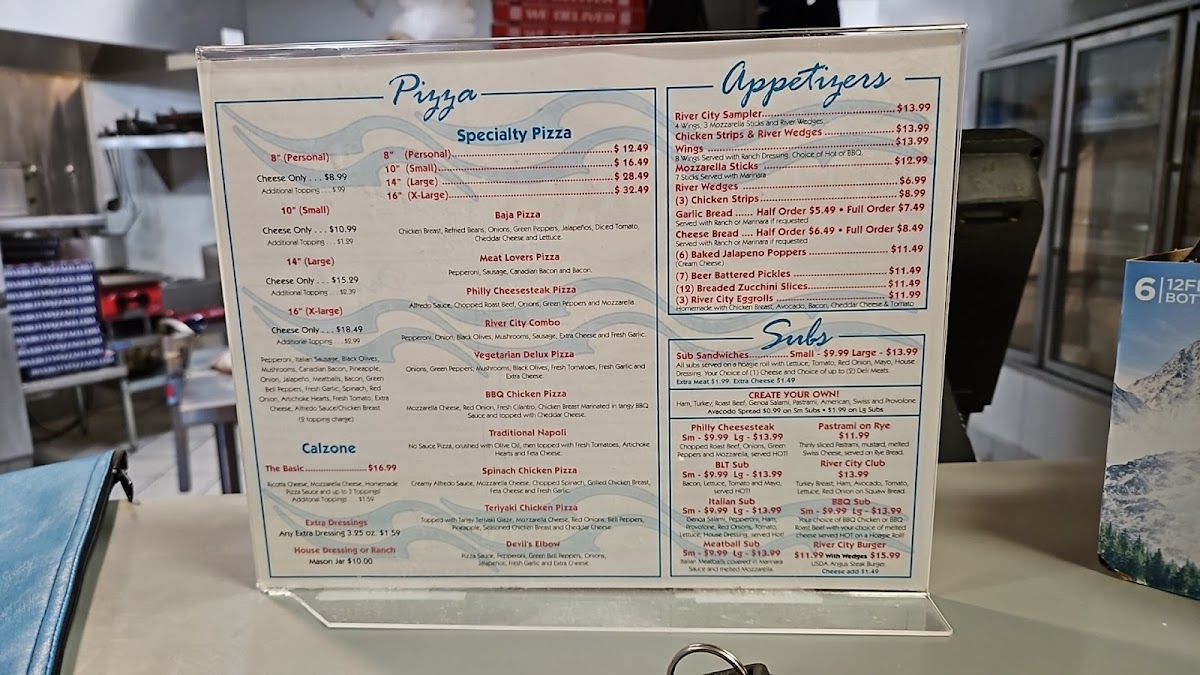 WE DELIVER
WE DELIVER
Pizza
Specialty Pizza
8" (Personal)
Cheese Only . . . $8.99
Additional Topping . . $.99
10" (Small)
Cheese Only . . . $10.99
Additional Topping . . . $1.29
14" (Large)
Cheese Only . . . $15.29
Additional Topping . . . $2.39
16" (X-large)
Cheese Only . . . $18.49
Additional Topping . . . $2.99
Pepperoni, Italian Sausage, Black Olives,
Mushrooms, Canadian Bacon, Pineapple,
Onion, Jalapeño, Meatballs, Bacon, Green
Bell Peppers, Fresh Garlic, Spinach, Red
Onion, Artichoke Hearts, Fresh Tomato, Extra
Cheese, Alfredo Sauce/Chicken Breast
(2 topping charge)
Calzone
The Basic..............................$16.99
Ricotta Cheese, Mozzarella Cheese, Homemade
Pizza Sauce and up to 3 Toppings!
Additional Toppings . . . $1.59
Extra Dressings
Any Extra Dressing 3.25 oz. $1.59
House Dressing or Ranch
Mason Jar $10.00
8" (Personal)..............................$ 12.49
10" (Small)..............................$ 16.49
14" (Large)..............................$ 28.49
16" (X-Large)..............................$ 32.49
Baja Pizza
Chicken Breast, Refried Beans, Onions, Green Peppers, Jalapeños, Diced Tomato,
Cheddar Cheese and Lettuce.
Meat Lovers Pizza
Pepperoni, Sausage, Canadian Bacon and Bacon.
Philly Cheesesteak Pizza
Alfredo Sauce, Chopped Roast Beef, Onions, Green Peppers and Mozzarella.
River City Combo
Pepperoni, Onion, Black Olives, Mushrooms, Sausage, Extra Cheese and Fresh Garlic.
Vegetarian Delux Pizza
Onions, Green Peppers, Mushrooms, Black Olives, Fresh Tomatoes, Fresh Garlic and
Extra Cheese.
BBQ Chicken Pizza
Mozzarella Cheese, Red Onion, Fresh Cilantro, Chicken Breast Marinated in tangy BBQ
Sauce and topped with Cheddar Cheese.
Traditional Napoli
No Sauce Pizza, crushed with Olive Oil, then topped with Fresh Tomatoes, Artichoke
Hearts and Feta Cheese.
Spinach Chicken Pizza
Creamy Alfredo Sauce, Mozzarella Cheese, Chopped Spinach, Grilled Chicken Breast,
Feta Cheese and Fresh Garlic.
Teriyaki Chicken Pizza
Topped with Tangy Teriyaki Glaze, Mozzarella Cheese, Red Onions, Bell Peppers,
Pineapple, Seasoned Chicken Breast and Cheddar Cheese.
Devil's Elbow
Pizza Sauce, Pepperoni, Green Bell Peppers, Onions,
Jalapeños, Fresh Garlic and Extra Cheese
Appetizers
River City Sampler..............................$13.99
4 Wings, 3 Mozzarella Sticks and River Wedges.
Chicken Strips & River Wedges ....................$13.99
Wings ..............................$13.99
8 Wings Served with Ranch Dressing. Choice of Hot or BBQ.
Mozzarella Sticks ..............................$12.99
7 Sticks Served with Marinara
River Wedges ..............................$6.99
(3) Chicken Strips..............................$8.99
Garlic Bread ...... Half Order $5.49 • Full Order $7.49
Served with Ranch or Marinara if requested
Cheese Bread .... Half Order $6.49 • Full Order $8.49
Served with Ranch or Marinara if requested
(6) Baked Jalapeno Poppers ....................$11.49
(Cream Cheese)
(7) Beer Battered Pickles ....................$11.49
(12) Breaded Zucchini Slices....................$11.49
(3) River City Eggrolls ....................$11.99
Homemade with Chicken Breast, Avocado, Bacon, Cheddar Cheese & Tomato
Subs
Sub Sandwiches............Small - $9.99 Large - $13.99
All subs served on a hoagie roll with Lettuce, Tomato, Red Onion, Mayo, House
Dressing, Your Choice of (1) Cheese and Choice of up to (2) Deli Meats.
Extra Meat $1.99, Extra Cheese $1.49
CREATE YOUR OWN!
Ham, Turkey, Roast Beef, Genoa Salami, Pastrami, American, Swiss and Provolone
Avacodo Spread $0.99 on Sm Subs • $1.99 on Lg Subs
Philly Cheesesteak
Sm - $9.99 Lg - $13.99
Chopped Roast Beef, Onions, Green
Peppers and Mozzarella, served HOT!
BLT Sub
Sm - $9.99 Lg - $13.99
Bacon, Lettuce, Tomato and Mayo,
served HOT!
Italian Sub
Sm - $9.99 Lg - $13.99
Genoa Salami, Pepperoni, Ham,
Provolone, Red Onions, Tomato,
Lettuce, House Dressing, served Hot!
Meatball Sub
Sm - $9.99 Lg - $13.99
Italian Meatballs covered in Marinara
Sauce and melted Mozzarella.
Pastrami on Rye
$11.99
Thinly sliced Pastrami, mustard, melted
Swiss Cheese, served on Rye Bread.
River City Club
$13.99
Turkey Breast, Ham, Avocado, Tomato,
Lettuce, Red Onion on Squaw Bread.
BBQ Sub
Sm - $9.99 Lg - $13.99
Your choice of BBQ Chicken or BBQ
Roast Beef with your choice of melted
cheese served HOT on a Hoagie Roll!
River City Burger
$11.99 With Wedges $15.99
USDA Angus Steak Burger
Cheese add $1.49
6 12FL
BOT